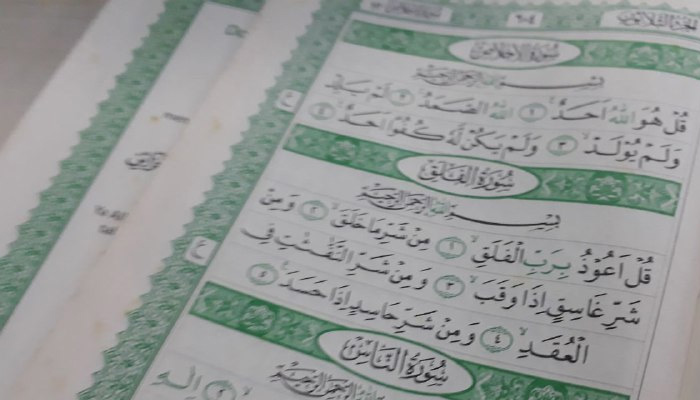 الجزء الثلاثون ٦٠٤
سورة الإخلاص
بسم الله الرحمن الرحيم
قُلْ هُوَ اللّٰهُ اَحَدٌ ١ اَللّٰهُ الصَّمَدُ ٢ لَمْ يَلِدْ
وَلَمْ يُوْلَدْ ٣ وَلَمْ يَكُنْ لَّهٗ كُفُوًا اَحَدٌ ٤
سورة الفلق
بسم الله الرحمن الرحيم
قُلْ اَعُوْذُ بِرَبِّ الْفَلَقِ ١ مِنْ شَرِّ مَا خَلَقَ ٢ وَمِنْ
شَرِّ غَاسِقٍ اِذَا وَقَبَ ٣ وَمِنْ شَرِّ النَّفّٰثٰتِ فِى
الْعُقَدِ ٤ وَمِنْ شَرِّ حَاسِدٍ اِذَا حَسَدَ
سورة الناس
بسم الله الرحمن الرحيم